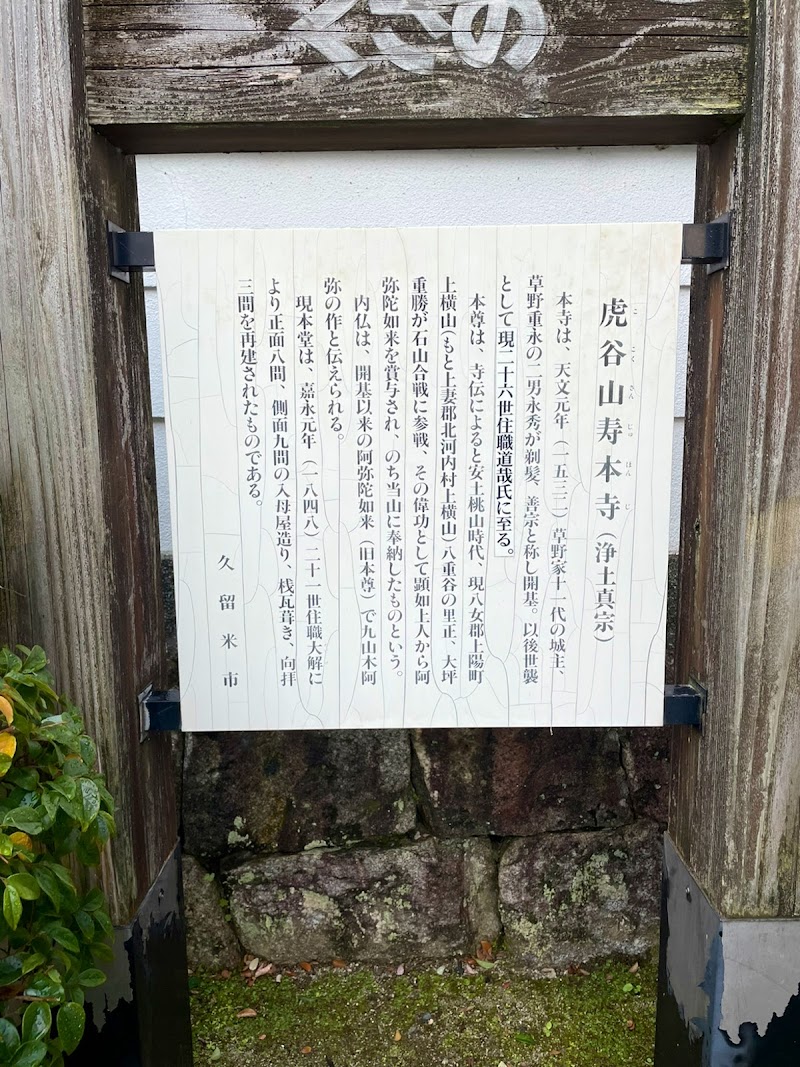 くさの
虎谷山寿本寺(浄土真宗)
ここくさんじゅほんじ
本寺は、天文元年(一五三二)草野家十一代の城主、
草野重永の二男永秀が剃髪、善宗と称し開基。以後世襲
として現二十六世住職道哉氏に至る。
本尊は、寺伝によると安土桃山時代、現八女郡上陽町
上横山(もと上妻郡北河内村上横山)八重谷の里正、大坪
重勝が石山合戦に参戦、その偉功として顕如上人から阿
弥陀如来を賞与され、のち当山に奉納したものという。
内仏は、開基以来の阿弥陀如来(旧本尊)で九山木阿
弥の作と伝えられる。
現本堂は、嘉永元年(一八四八)二十一世住職大解に
より正面八間、側面九間の入母屋造り、桟瓦葺き、向拝
三間を再建されたものである。
久留米市